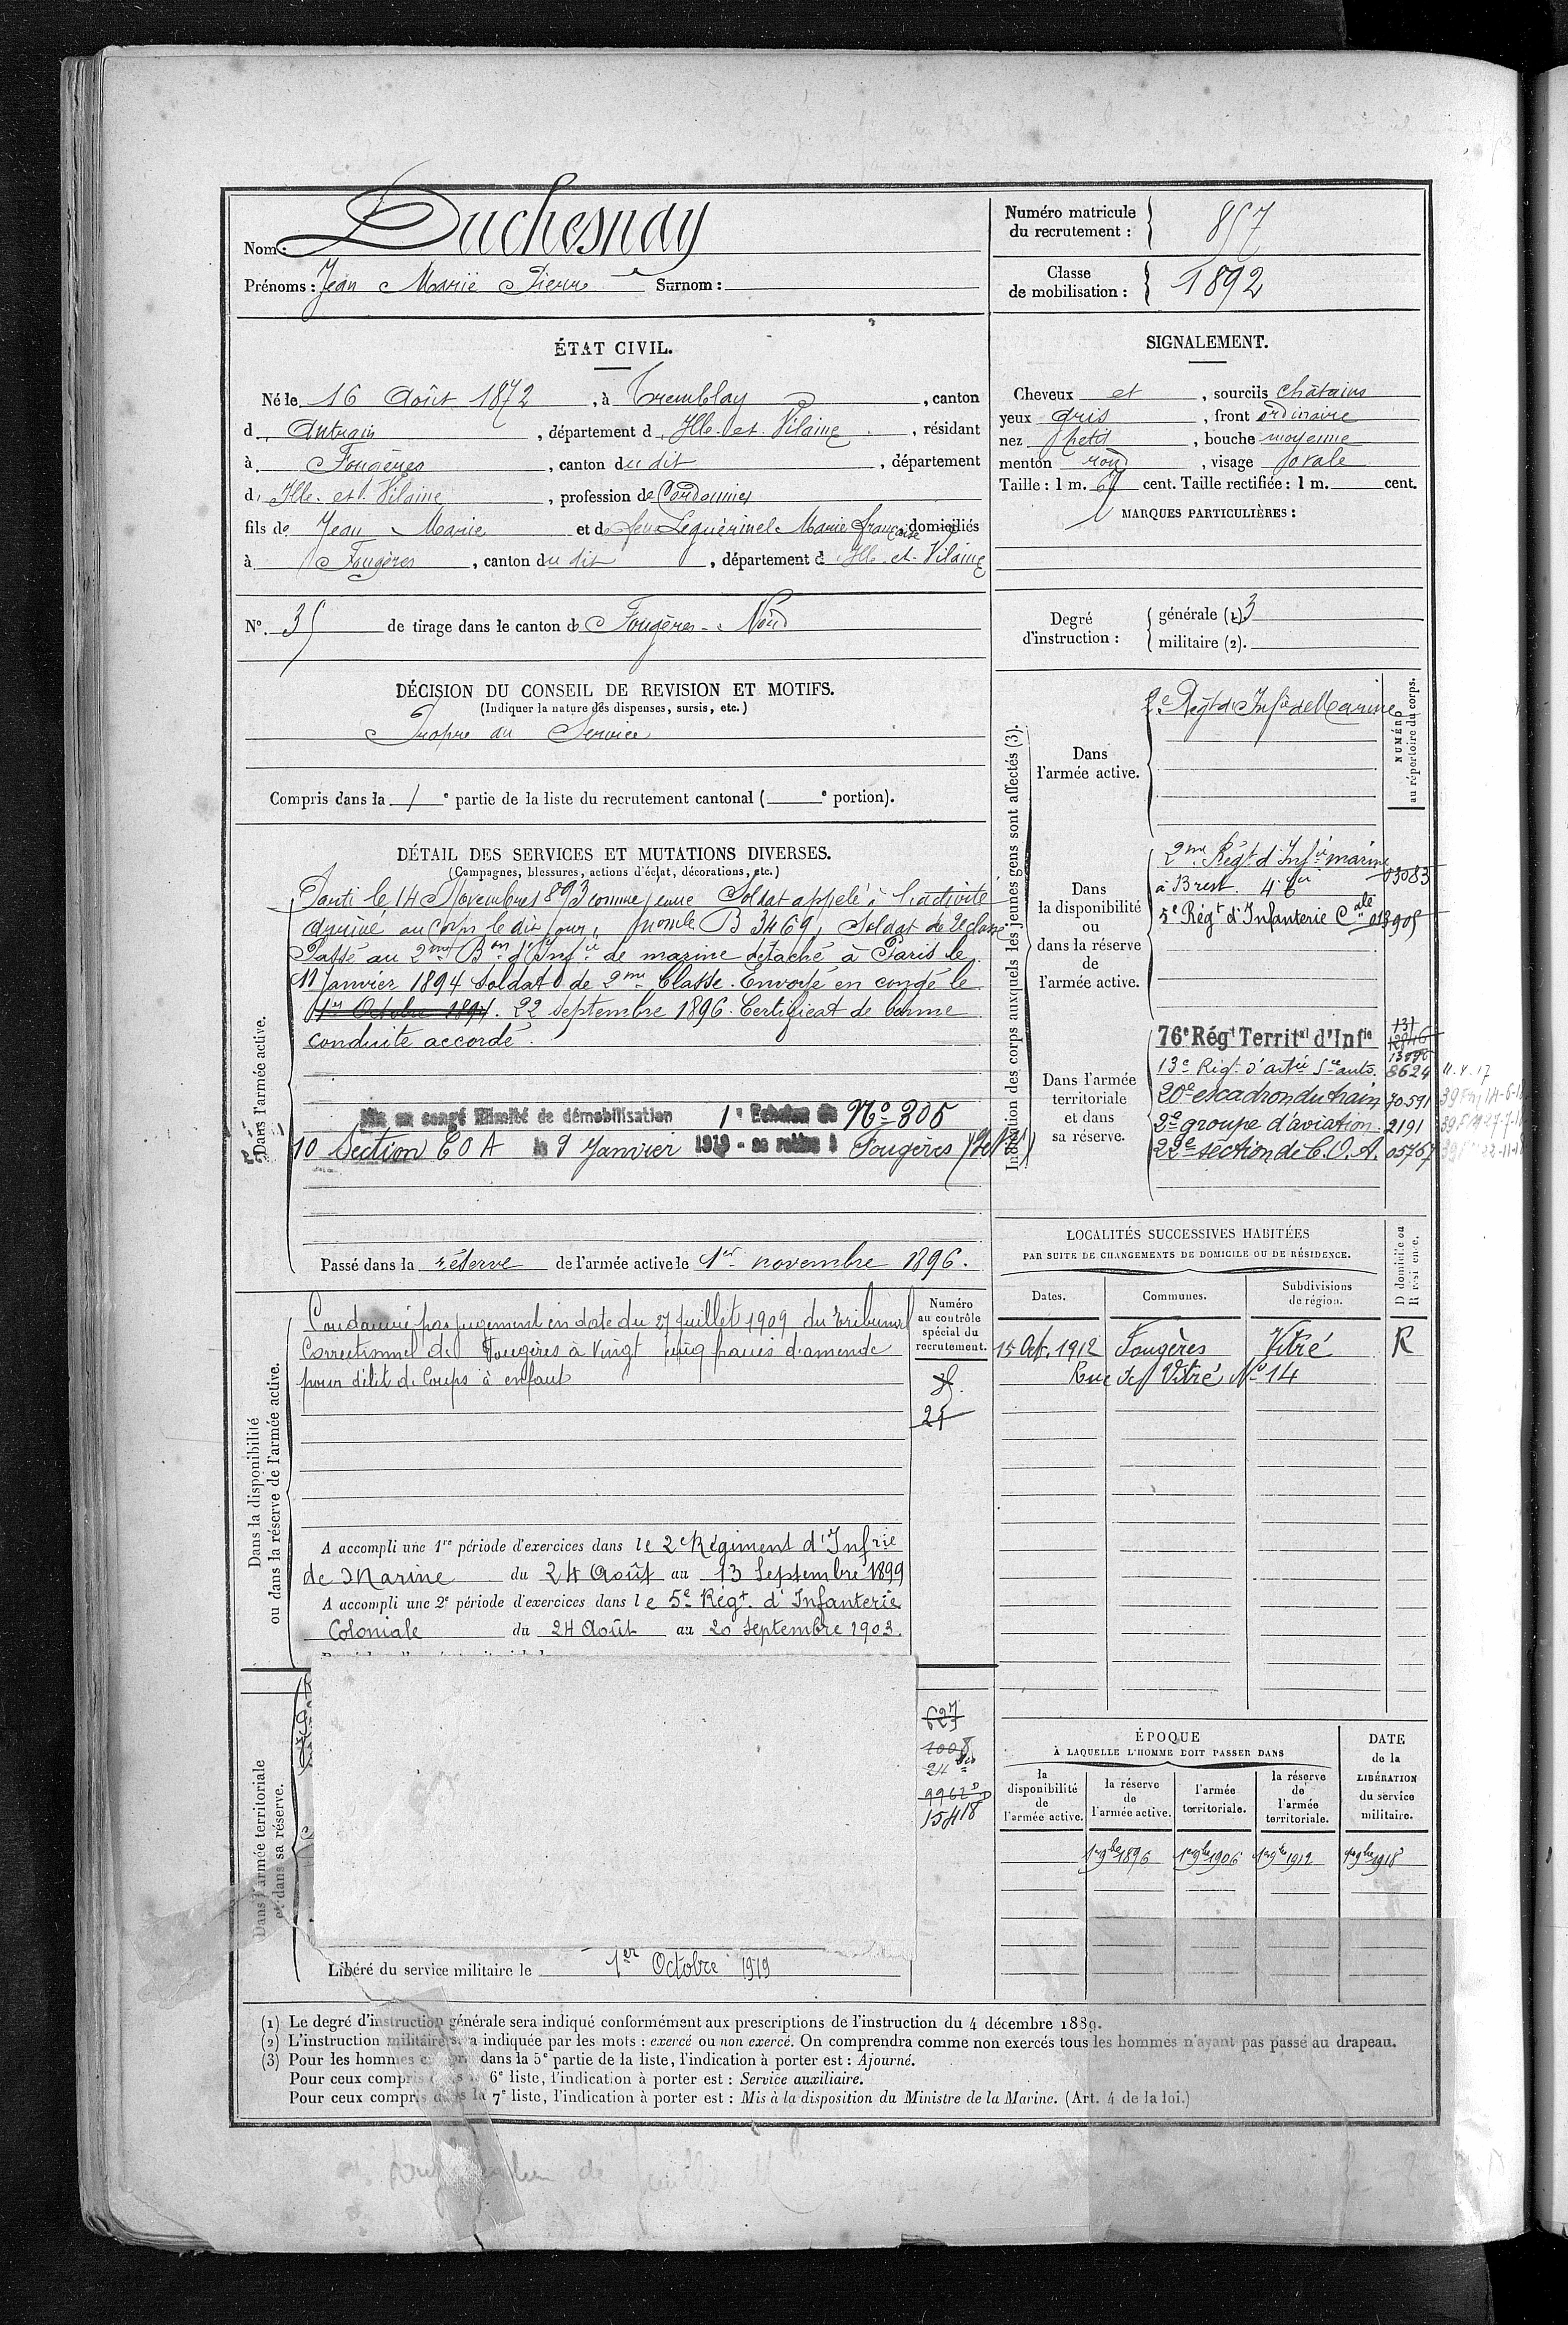 Nom : Duchesnay
Prénoms : Jean Marie Pierre Surnom :
Numéro matricule du recrutement : 857
Classe de mobilisation : 1892
ÉTAT CIVIL.
Né le 16 Août 1872, à Tremblay, canton
d Antrain, département d Ille-et-Vilaine, résidant
à Fougères, canton du dit, département
d Ille-et-Vilaine, profession de Cordonnier
fils de Jean Marie et de feue Leguérinel Marie françoise domiciliés
à Fougères, canton du dit, département d Ille-et-Vilaine
N° 35 de tirage dans le canton de Fougères-Nord
DÉCISION DU CONSEIL DE REVISION ET MOTIFS.
(Indiquer la nature des dispenses, sursis, etc.)
Propre au Service
Compris dans la 1e partie de la liste du recrutement cantonal ( e portion).
SIGNALEMENT.
Cheveux et, sourcils châtains
yeux gris, front ordinaire
nez petit, bouche moyenne
menton rond, visage ovale
Taille : 1 m. 67 cent. Taille rectifiée : 1 m. cent.
MARQUES PARTICULIÈRES :
Degré d'instruction :
générale (1) 3
militaire (2).
DÉTAIL DES SERVICES ET MUTATIONS DIVERSES.
(Campagnes, blessures, actions d'éclat, décorations, etc.)
Dans l'armée active.
Parti le 14 Novembre 1893 comme jeune Soldat appelé à l'activité
arrivé au corps le dit jour, nomle B 3469, Soldat de 2e classe
Passé au 2me Bon d'Infie de marine détaché à Paris le
11 Janvier 1894 Soldat de 2me Classe. Envoyé en congé le
1er Octobre 1894. 22 septembre 1896. Certificat de bonne
conduite accordé.
Mis en congé illimité de démobilisation 1e Echelon No 305
10 Section COA le 9 Janvier 1919 - se retire à Fougères
Passé dans la réserve de l'armée active le 1er novembre 1896.
Indication des corps auxquels les jeunes gens sont affectés (3).
NUMÉRO au répertoire du corps.
Dans l'armée active.
2e Régt d'Infie de Marine
Dans la disponibilité ou dans la réserve de l'armée active.
2me Régt d'Infie marine
à Brest. 03083
5e Régt d'Infanterie Cale 013905
Dans l'armée territoriale et dans sa réserve.
76e Régt Territal d'Infie 131
13e Régt d'artie Sce auto. 8624 11.4.17
20e escadron du train 70591
2e groupe d'aviation. 2191
22e section de C.O.A. 05767
Dans la disponibilité ou dans la réserve de l'armée active.
Condamné par jugement en date du 27 juillet 1909 du Tribunal
Correctionnel de Fougères à Vingt cinq francs d'amende
pour délit de Coups à enfant
Numéro au contrôle spécial du recrutement.
25
A accompli une 1re période d'exercices dans le 2e Régiment d'Infrie
de Marine du 24 Août au 13 Septembre 1899
A accompli une 2e période d'exercices dans le 5e Régt. d'Infanterie
Coloniale du 24 Août au 20 septembre 1903.
LOCALITÉS SUCCESSIVES HABITÉES
PAR SUITE DE CHANGEMENTS DE DOMICILE OU DE RÉSIDENCE.
Dates. Communes. Subdivisions de région. D domicile ou R résidence.
15 Oct. 1912 Fougères Vitré R
Rue de Vitré No 14
Dans l'armée territoriale et dans sa réserve.
627
1008
9962
15418
ÉPOQUE
À LAQUELLE L'HOMME DOIT PASSER DANS
la disponibilité de l'armée active.
la réserve de l'armée active.
l'armée territoriale.
la réserve de l'armée territoriale.
DATE de la LIBÉRATION du service militaire.
1er 9bre 1896 1er 9bre 1906 1er 9bre 1912 1er 9bre 1918
Libéré du service militaire le 1er Octobre 1919
(1) Le degré d'instruction générale sera indiqué conformément aux prescriptions de l'instruction du 4 décembre 1889.
(2) L'instruction militaire sera indiquée par les mots : exercé ou non exercé. On comprendra comme non exercés tous les hommes n'ayant pas passé au drapeau.
(3) Pour les hommes compris dans la 5e partie de la liste, l'indication à porter est : Ajourné.
Pour ceux compris dans la 6e liste, l'indication à porter est : Service auxiliaire.
Pour ceux compris dans la 7e liste, l'indication à porter est : Mis à la disposition du Ministre de la Marine. (Art. 4 de la loi.)